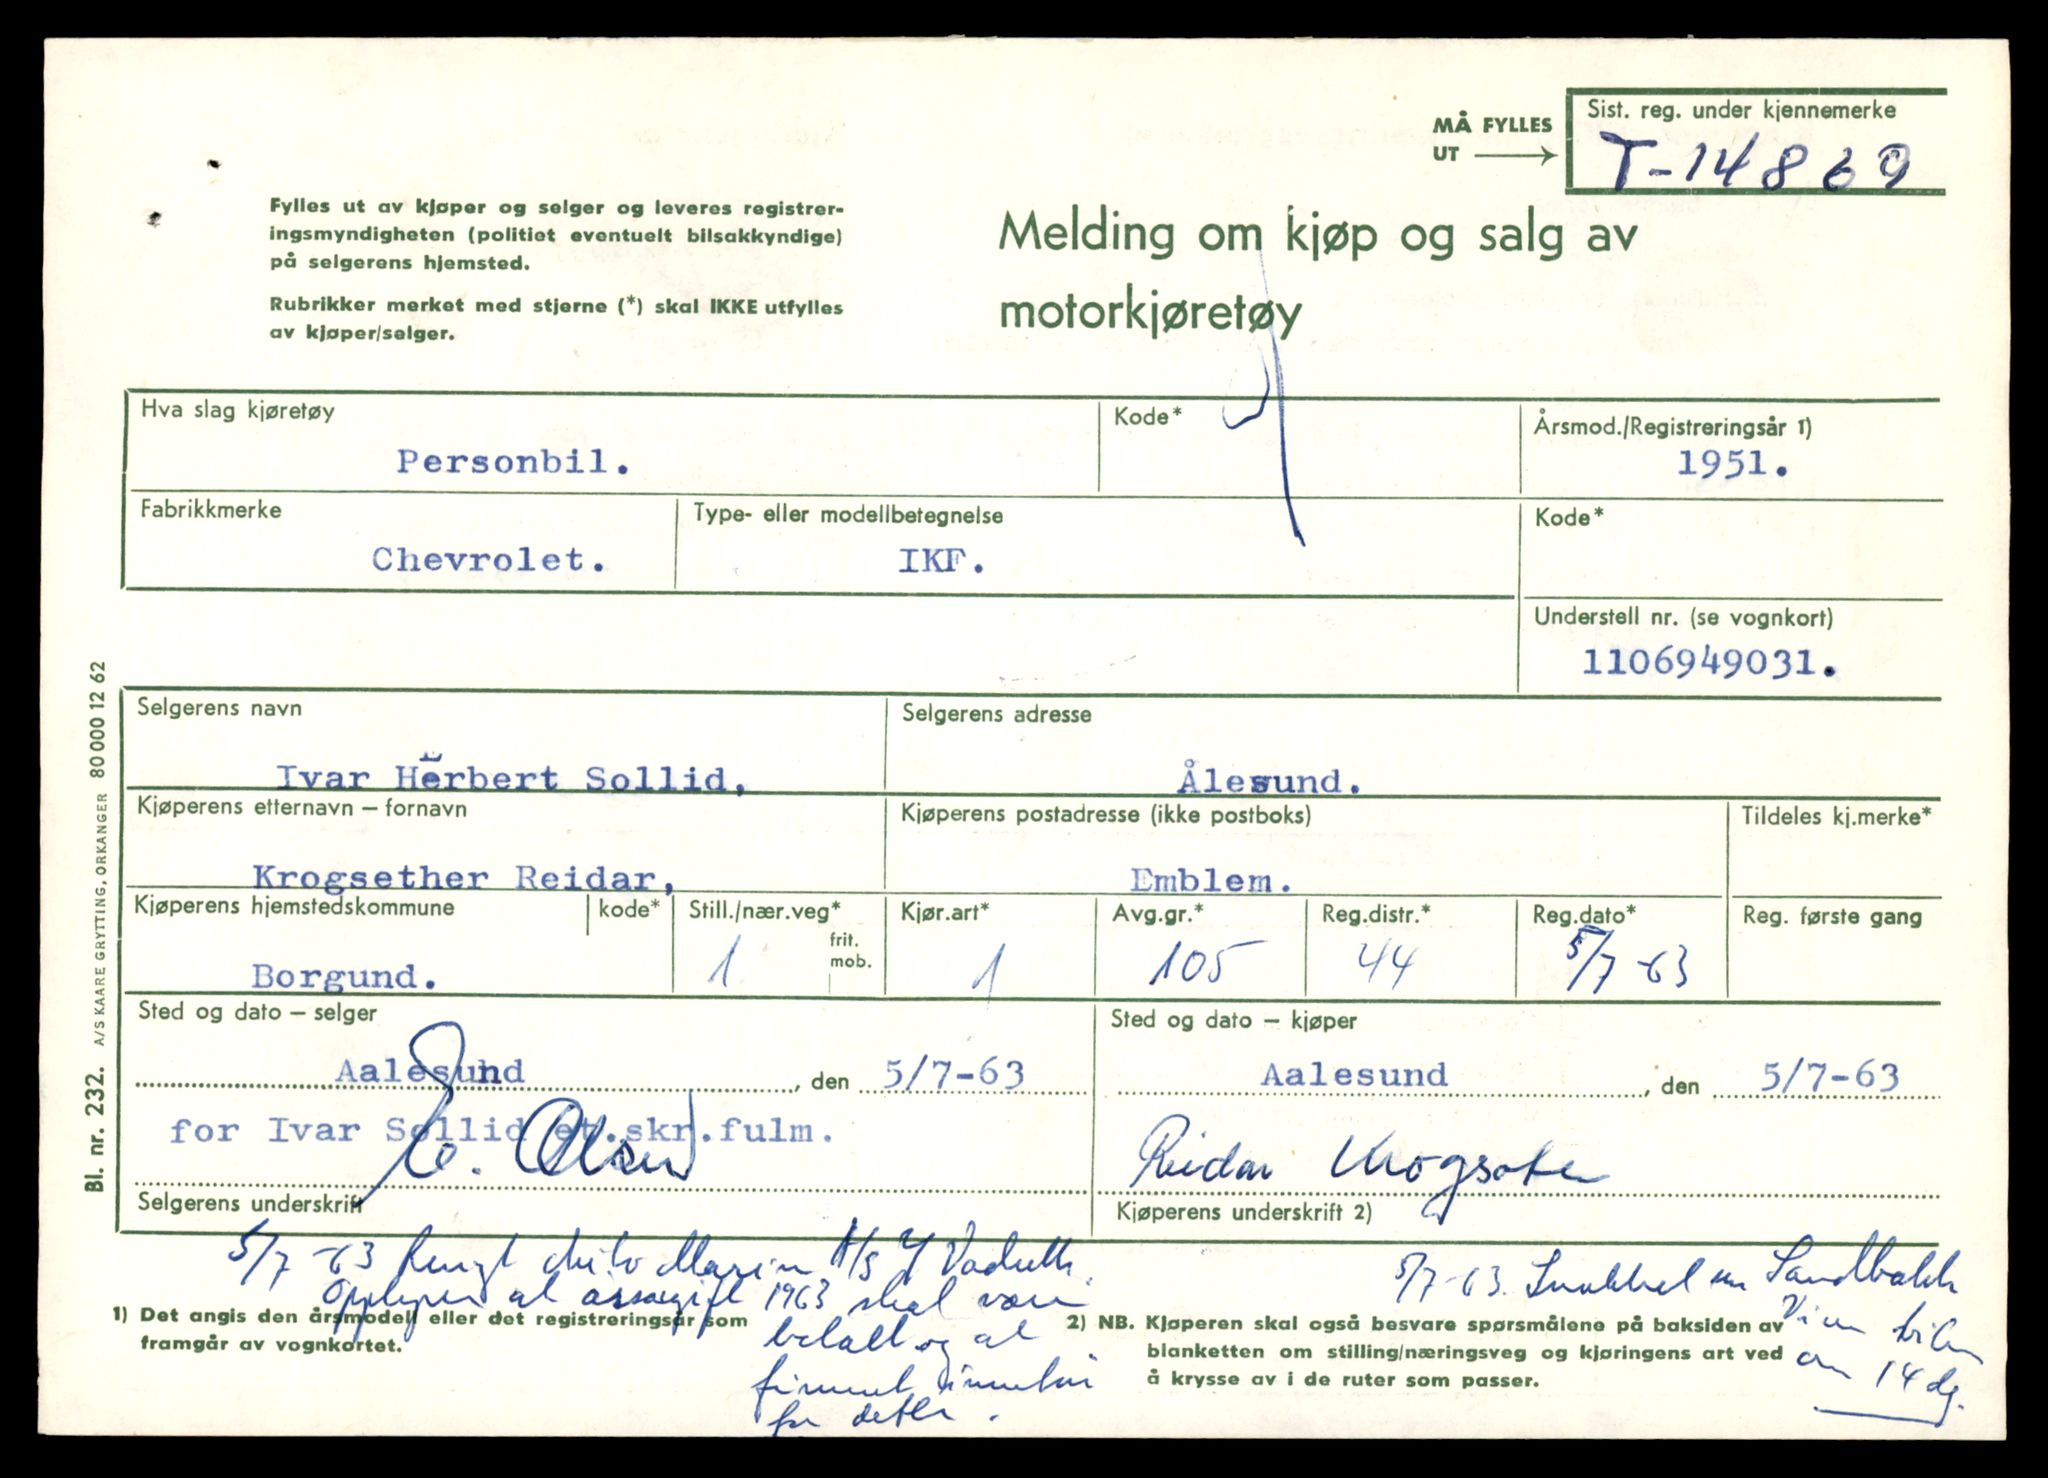 MÅ FYLLES
UT
Sist. reg. under kjennemerke
T-14869
Fylles ut av kjøper og selger og leveres registrer-
ingsmyndigheten (politiet eventuelt bilsakkyndige)
på selgerens hjemsted.
Rubrikker merket med stjerne (*) skal IKKE utfylles
av kjøper/selger.
Melding om kjøp og salg av
motorkjøretøy
Hva slag kjøretøy
Personbil.
Kode*
Årsmod./Registreringsår 1)
1951.
Fabrikkmerke
Chevrolet.
Type- eller modellbetegnelse
IKF.
Kode*
Understell nr. (se vognkort)
1106949031.
Selgerens navn
Ivar Herbert Sollid,
Selgerens adresse
Ålesund.
Kjøperens etternavn – fornavn
Krogsether Reidar,
Kjøperens postadresse (ikke postboks)
Emblem.
Tildeles kj.merke*
Kjøperens hjemstedskommune
Borgund.
kode*
Still./nær.veg*
1
frit.
mob.
Kjør.art*
1
Avg.gr.*
105
Reg.distr.*
44
Reg.dato*
5/7-63
Reg. første gang
Sted og dato – selger
Aalesund, den 5/7-63
for Ivar Sollid et.skr.fulm.
E. Olsen
Selgerens underskrift
Sted og dato – kjøper
Aalesund, den 5/7-63
Reidar Krogseter
Kjøperens underskrift 2)
5/7-63 Ringt
1963 skal være
betalt og at
for dette.
5/7-63. Snakket m Sandbakk
om 14 dg.
1) Det angis den årsmodell eller det registreringsår som
framgår av vognkortet.
2) NB. Kjøperen skal også besvare spørsmålene på baksiden av
blanketten om stilling/næringsveg og kjøringens art ved
å krysse av i de ruter som passer.
Bl. nr. 232. A/S KAARE GRYTTING, ORKANGER 80 000 12 62